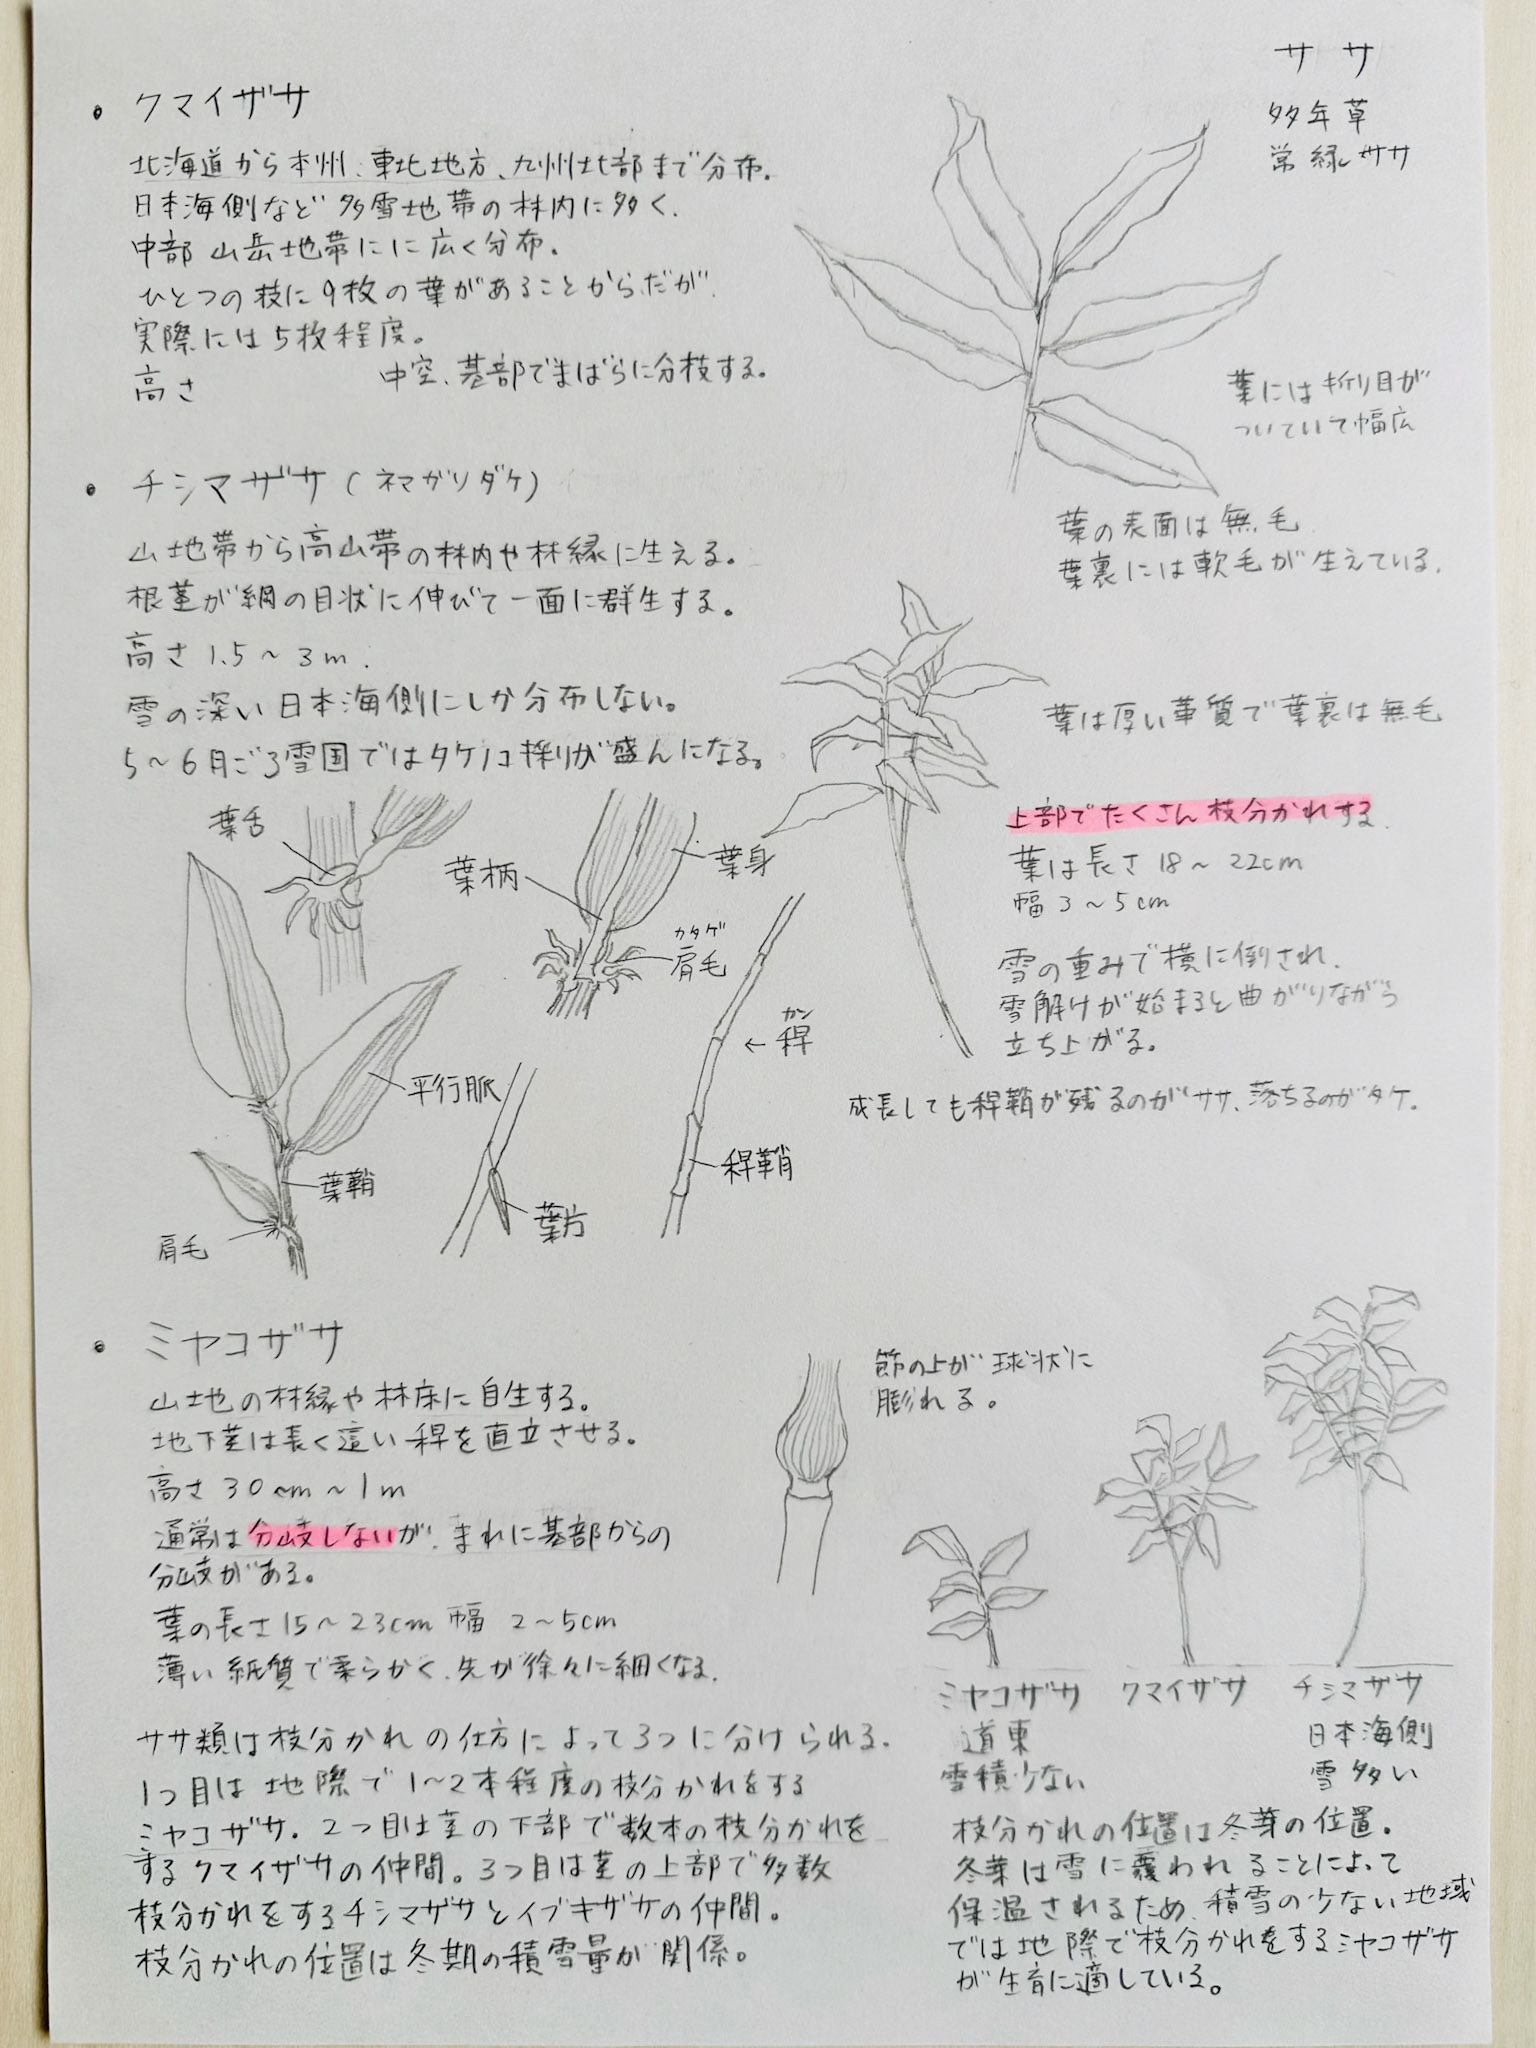 ササ
多年草
常緑ササ
・クマイザサ
北海道から本州、東北地方、九州北部まで分布。
日本海側など多雪地帯の林内に多く、
中部山岳地帯にに広く分布。
ひとつの枝に9枚の葉があることからだが、
実際には5枚程度。
高さ 中空、基部でまばらに分枝する。
葉には折り目が
ついていて幅広
葉の表面は無毛
葉裏には軟毛が生えている。
・チシマザサ(ネマガリダケ)
山地帯から高山帯の林内や林縁に生える。
根茎が網の目状に伸びて一面に群生する。
高さ1.5〜3m.
雪の深い日本海側にしか分布しない。
5〜6月ごろ雪国ではタケノコ採りが盛んになる。
葉は厚い革質で葉裏は無毛
上部でたくさん枝分かれする.
葉は長さ18〜22cm
幅3〜5cm
雪の重みで横に倒され、
雪解けが始まると曲がりながら
立ち上がる。
成長しても稈鞘が残るのがササ、落ちるのがタケ.
葉舌
葉柄
葉身
カタゲ
肩毛
カン
←稈
平行脈
葉鞘
稈鞘
葉片
肩毛
・ミヤコザサ
山地の林縁や林床に自生する。
地下茎は長く這い稈を直立させる。
高さ30cm〜1m
通常は分岐しないが、まれに基部からの
分岐がある。
葉の長さ15〜23cm 幅 2〜5cm
薄い紙質で柔らかく、先が徐々に細くなる.
節の上が球状に
膨れる。
ササ類は枝分かれの仕方によって3つに分けられる.
1つ目は地際で1〜2本程度の枝分かれをする
ミヤコザサ. 2つ目は茎の下部で数本の枝分かれを
するクマイザサの仲間。3つ目は茎の上部で多数
枝分かれをするチシマザサとイブキザサの仲間。
枝分かれの位置は冬期の積雪量が関係。
ミヤコザサ クマイザサ チシマザサ
道東 日本海側
雪積少ない 雪多い
枝分かれの位置は冬芽の位置。
冬芽は雪に覆われることによって
保温されるため、積雪の少ない地域
では地際で枝分かれをするミヤコザサ
が生育に適している。